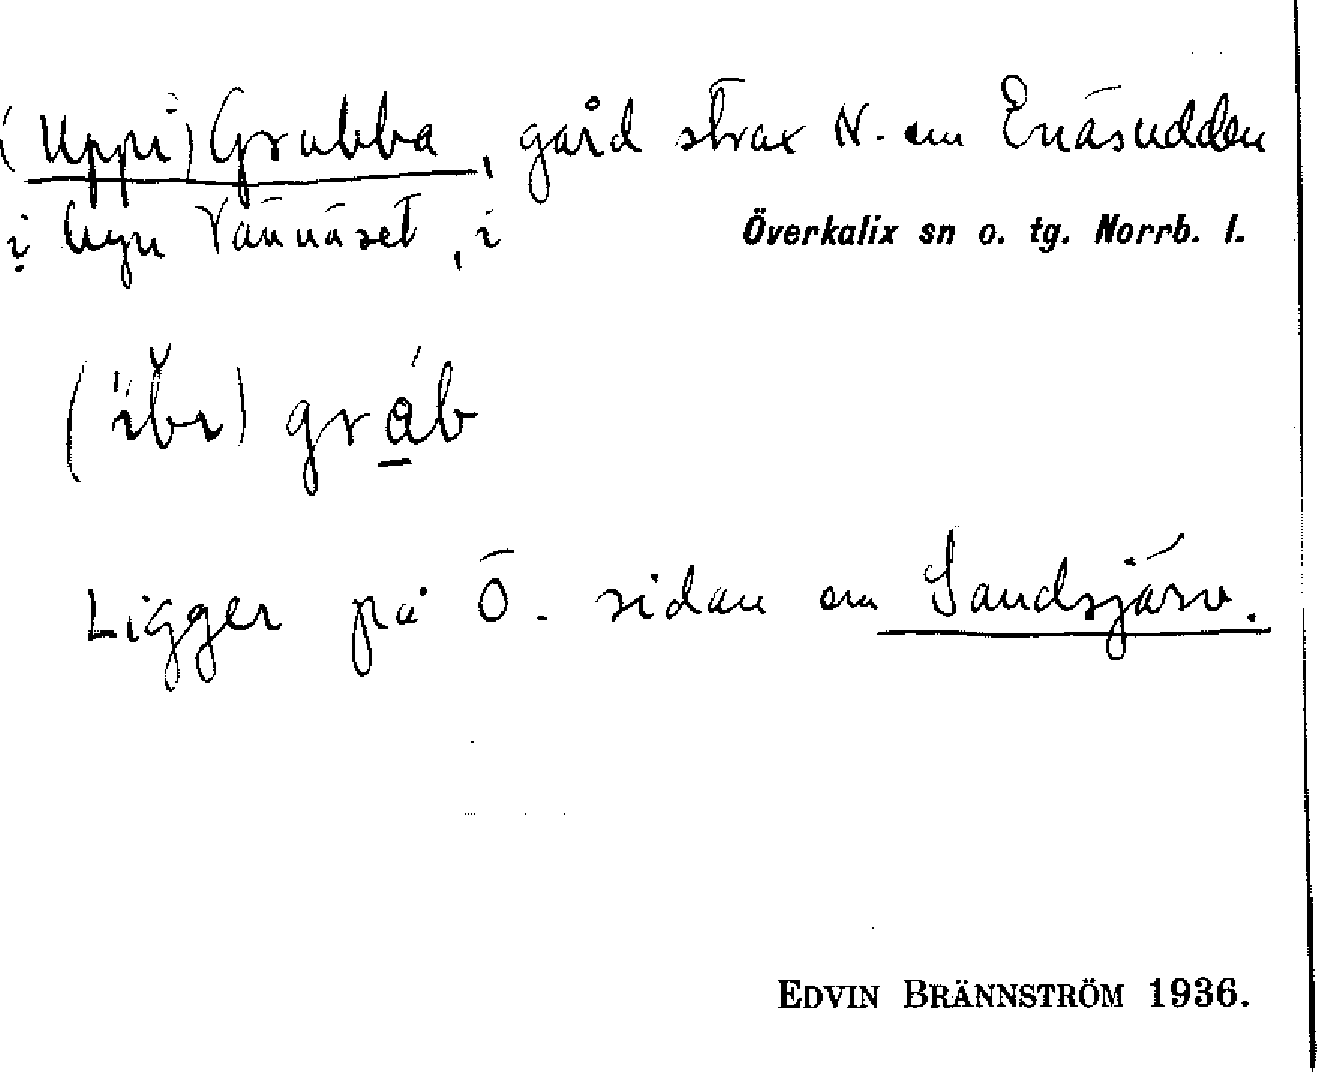 (Uppi) Grubba, gård strax N. om Enäsudden
i byn Vännäset, i Överkalix sn o. tg. Norrb. l.
(ib̌ı) gráb
Ligger på Ö. sidan om Sandsjärv.
EDVIN BRÄNNSTRÖM 1936.